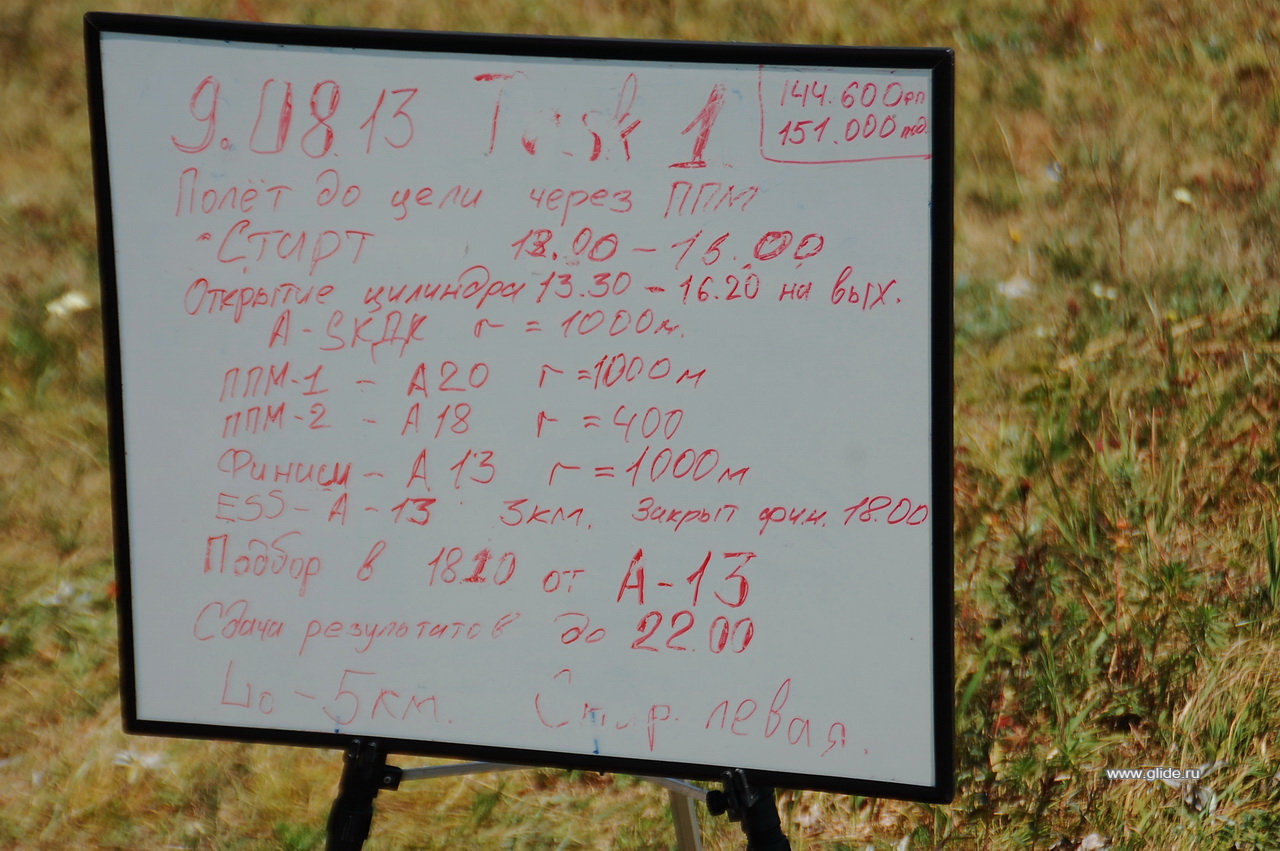 9.08.13 Task 1
144.600 рп
151.000 под.
Полёт до цели через ППМ
Старт 13.00 - 16.00
Открытие цилиндра 13.30 - 16.20 на вых.
r = 1000м.
ППМ-1 - А20 r =1000м
ППМ-2 - А18 r = 400
Финиш - А13 r = 1000м
ESS - А - 13 3км. Закрыт фин. 18.00
Подбор в 18.10 от А-13
Сдача результатов до 22.00
- 5км. левая.
www.glide.ru